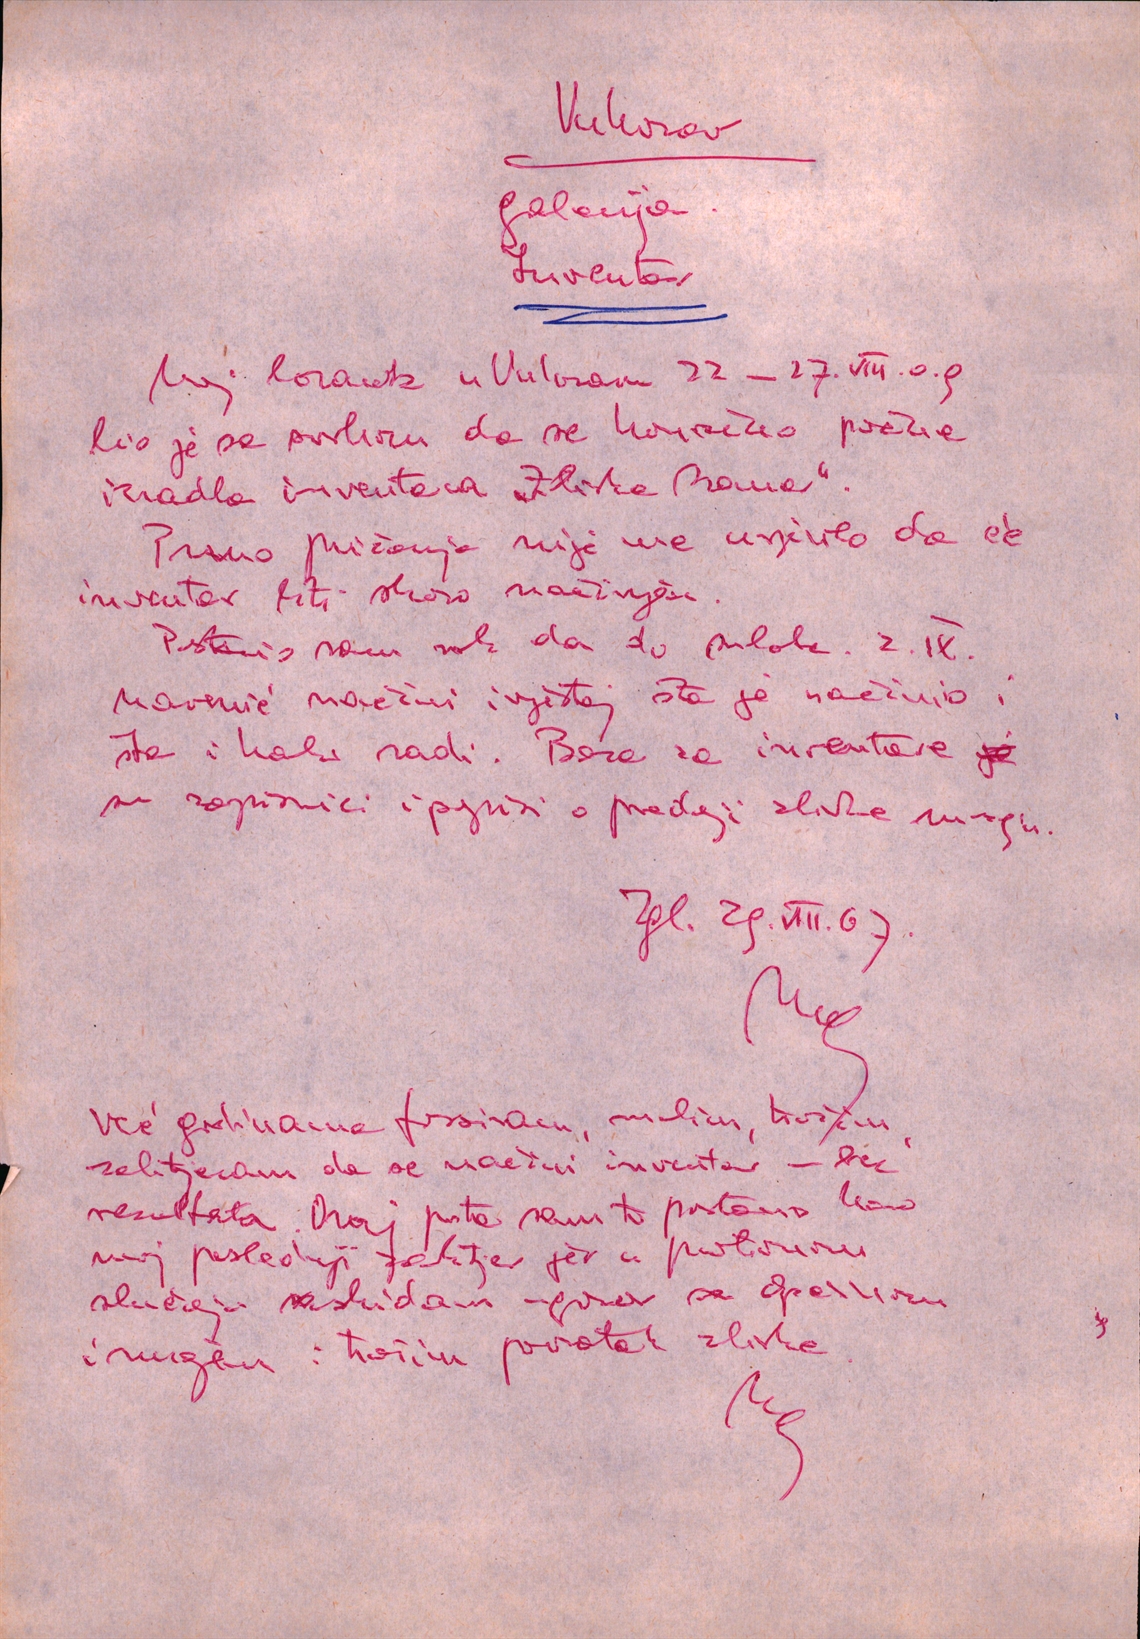 Vukovar
galerija.
Inventar
Moj boravak u Vukovaru 22 – 27. VIII. o.g
bio je sa svrhom da se konačno počne
izrada inventara „Zbirka Bauer“.
Prano pričanje nije me uvjerilo da će
inventar biti skoro načinjen.
sam rok da do subote. 2. IX.
načini izvještaj šta je načinio i
šta i kako radi. Baza za inventare je
su zapisnici i popisi o predaji zbirke muzeju.
Zgb. 29. VIII. 67.
Već godinama forsiram, molim, tražim,
zahtjevam da se načini inventar – bez
rezultata. Ovaj puta sam to postavio kao
moj posljednji zahtjev jer u protivnom
slučaju raskidam ugovor sa Općinom
i muzejom i tražim povratak zbirke.